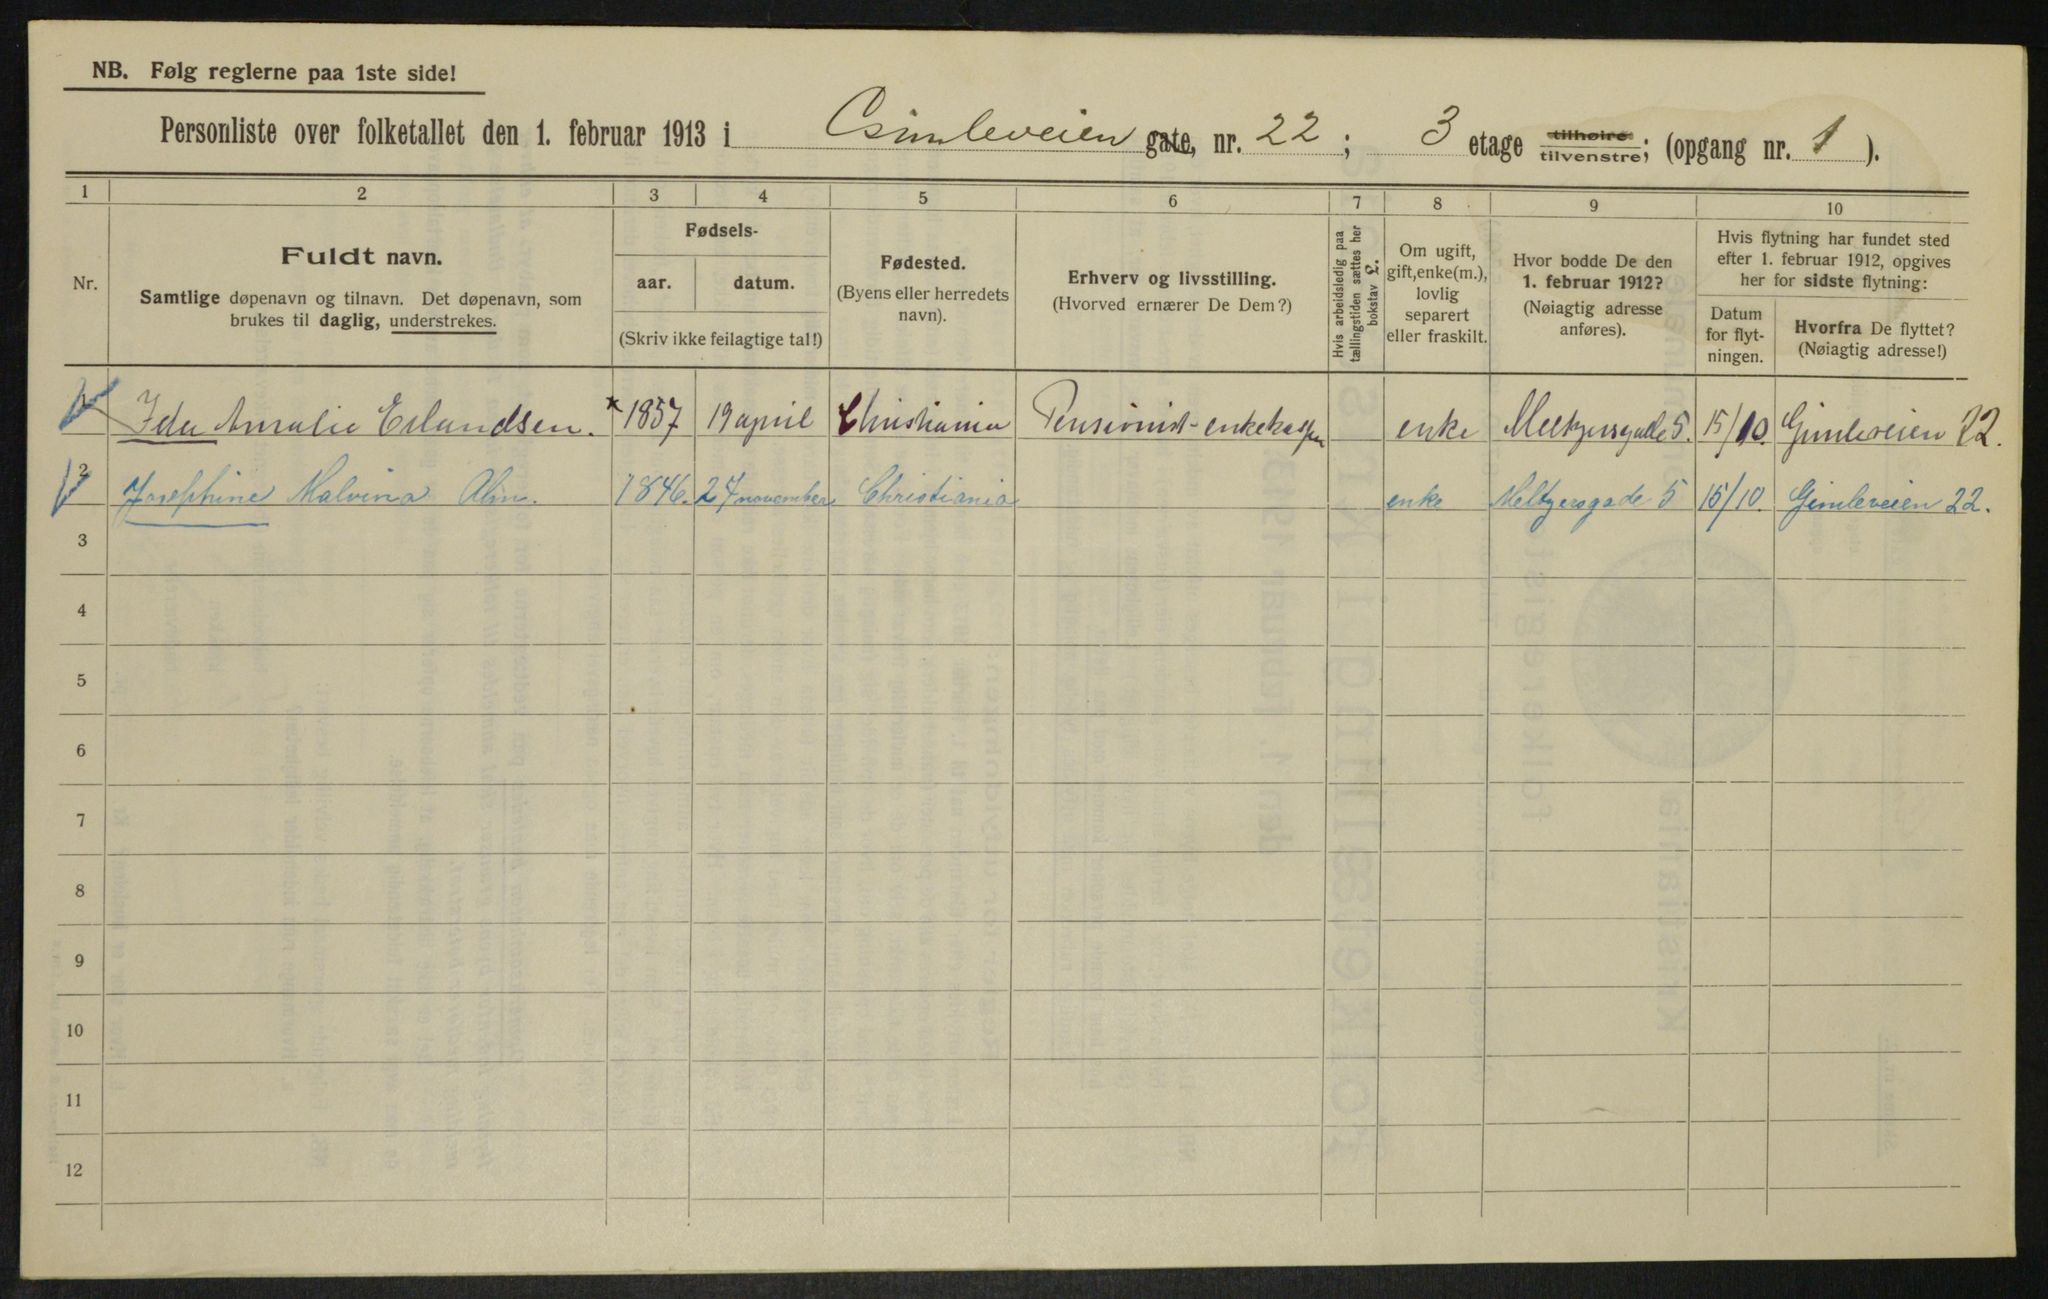 NB. Følg reglerne paa 1ste side!
Personliste over folketallet den 1. februar 1913 i Gimleveien gate, nr. 22 ; 3 etage tilhøire tilvenstre; (opgang nr. 1 ).
1 2 3 4 5 6 7 8 9 10
Nr.
Fuldt navn.
Samtlige døpenavn og tilnavn. Det døpenavn, som
brukes til daglig, understrekes.
Fødsels-
aar. datum.
(Skriv ikke feilagtige tal!)
Fødested.
(Byens eller herredets
navn).
Erhverv og livsstilling.
(Hvorved ernærer De Dem?)
Hvis arbeidsledig paa
tællingstiden sættes her
bokstav L.
Om ugift,
gift, enke(m.),
lovlig
separert
eller fraskilt.
Hvor bodde De den
1. februar 1912?
(Nøiagtig adresse
anføres).
Hvis flytning har fundet sted
efter 1. februar 1912, opgives
her for sidste flytning:
Datum
for flyt-
ningen.
Hvorfra De flyttet?
(Nøiagtig adresse!)
1 Ida Amalie Erlandsen. * 1857 19 april Christiania Pensionist - enkekassen enke Meltzersgade 5. 15/10. Gimleveien 22.
2 Josephine Malvina Alm. 1846. 27 november Christiania enke Meltzersgade 5 15/10. Gimleveien 22.
3
4
5
6
7
8
9
10
11
12